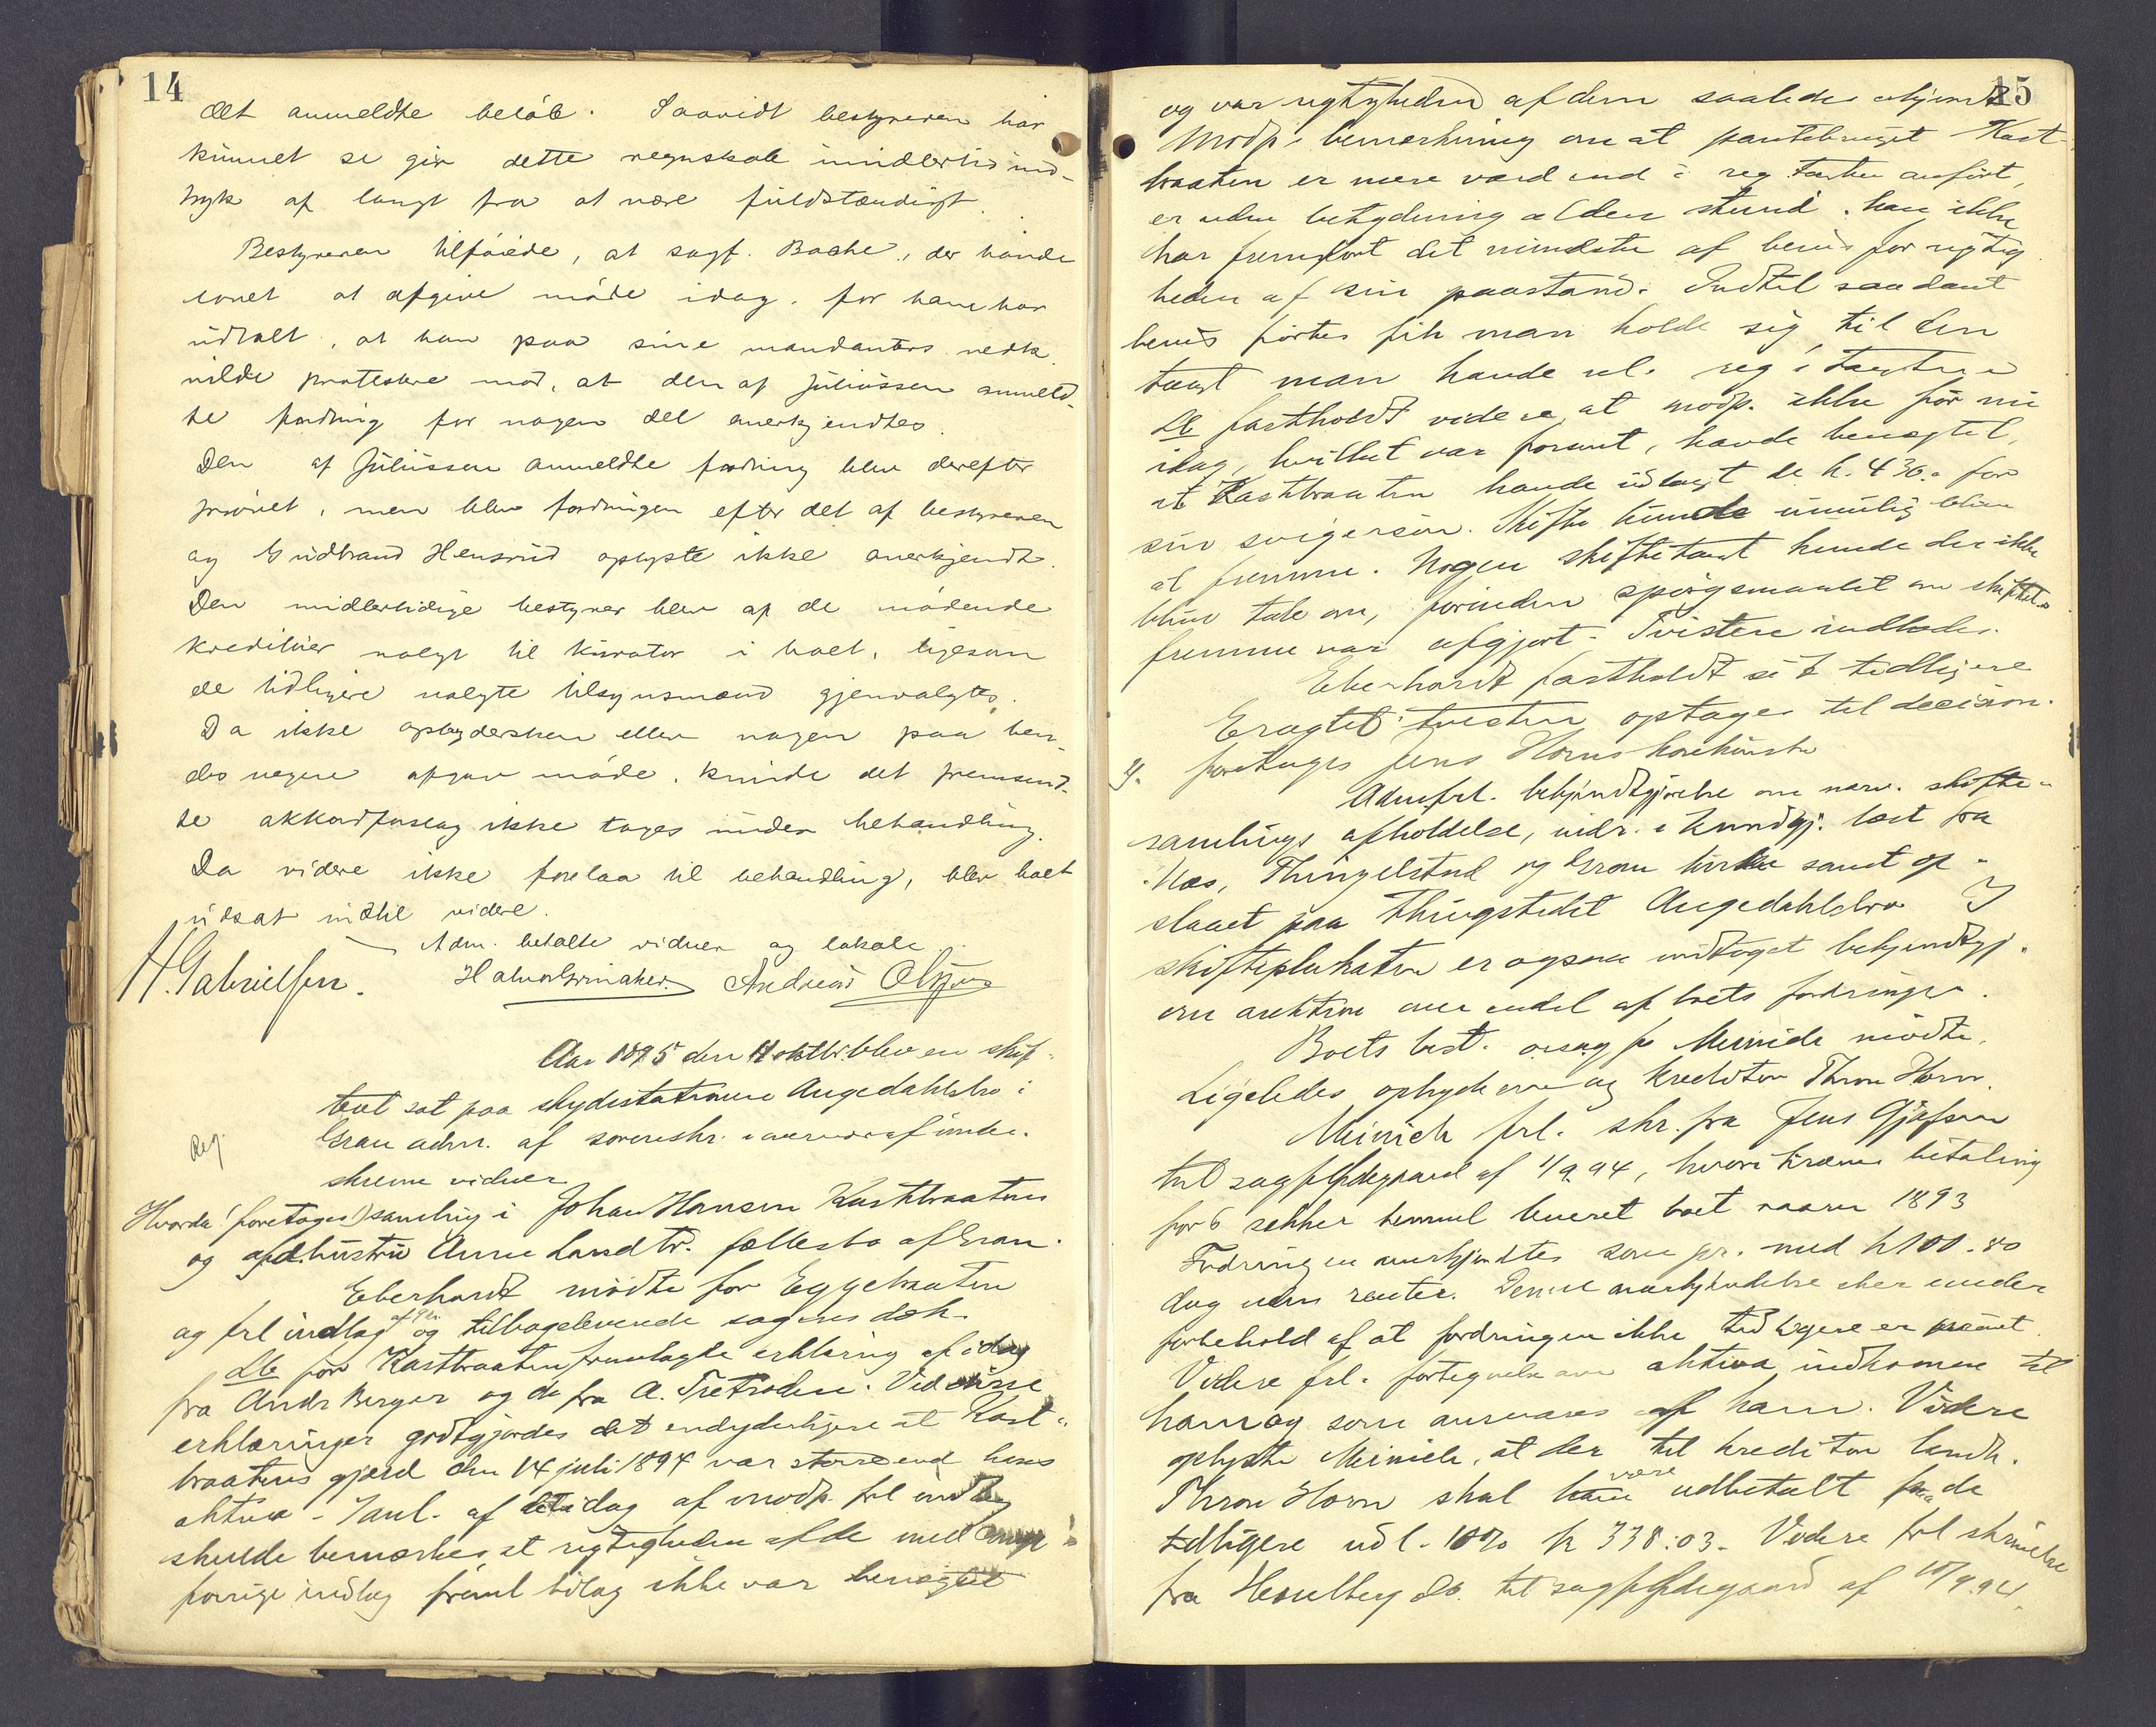 14
det anmeldte beløb. Saavidt bestyreren har
kunnet se gir dette regnskab imidlertid ind-
tryk af langt fra at være fuldstændigt.
Bestyreren tilføiede, at sagf. Bache, der havde
lovet at afgive møde idag, for ham har
udtalt, at han paa sine mandanters vedk.
vilde protestere mod, at den af Juliussen anmeld-
te fordring for nogen del anerkjendtes.
Den af Juliussen anmeldte fordring blev derefter
prøvet, men blev fordringen efter det af bestyreren
og Gudbrand Hensrud oplyste ikke anerkjendt.
Den midlertidige bestyrer blev af de mødende
kreditorer valgt til kurator i boet, ligesom
de tidligere valgte tilsynsmænd gjenvalgtes.
Da ikke opbydersken eller nogen paa hen-
des vegne afgav møde, kunde det fremsend-
te akkordforslag ikke tages under behandling.
Da videre ikke forelaa til behandling, blev boet
udsat indtil videre.
Adm. betalte vidner og lokale.
H. Gabrielsen. Halvor Grinaker. Andreas
Aar 1895 den 11 oktbr. blev en skif-
teret sat paa skydsstationen Augedahlsbro i
Gran adm. af sorenskr. i overvær af under-
skrevne vidner
Reg.
Hvorda: foretoges 1) samling i Johan Hansen Kastbraatens
og afd. hustru Anne Larsdtr. fællesbo af Gran.
Eberhardt mødte for Eggebraaten
og frl indlæg og tilbageleverede sagens dok.
Db for Kastbraaten fremlagde erklæring af idag
fra Andr Berger og do fra A. Tretroden. Ved disse
erklæringer godtgjordes det endyderligere at Kast-
braatens gjæld den 14 juli 1894 var større end hans
aktiva - I anl. af det idag af modp. frl indlæg
skulde bemærkes at rigtigheden af de med
forrige indlæg freml bilag ikke var benægtet
15
og var rigtigheden af dem saaledes erkjendt
Modp.s bemærkning om at pantebruget Kast-
braaten er mere værd end i reg. taxten anført,
er uden betydning al den stund han ikke
har fremført det mindste af bevis for rigtig
heden af sin paastand. Indtil saadant
bevis førtes fik man holde sig til den
taxt man havde nl. reg.s taxten
Db fastholdt videre at modp. ikke før nu
idag, hvilket var forsent, havde benægtet,
at Kastbraaten havde udlagt de k. 430.- for
sin svigersøn. Skifte kunde umulig blive
at fremme. Nogen skiftetaxt kunde der ikke
blive tale om, forinden spørgsmaalet om skiftets
fremme var afgjort. Tvisten indlodes.
Eberhardt fastholdt sit tidligere
Eragtet: tvisten optages til decision.
2. foretoges Jens Horns konkursbo
Adm frl. bekjendtgjørelse om nærv. skifte-
samlings afholdelse, vidr. kundgj. læst fra
Næs, Thingelstad og Gran kirke samt op-
slaaet paa thingstedet Augedahlsbro I
skifteplakaten er ogsaa indtaget bekjendtgj.
om auktion over endel af boets fordringer.
Boets best. o.sagf. Meinich mødte.
Ligeledes opbyderen og kreditor Thron Horn.
Meinich frl. skr. fra Jens Gjefsen
til sagf. Ødegaard af 1/9.94, hvori kræves betaling
for 6 sækker benmel leveret boet vaaren 1893
Fordringen anerkjendtes som pr. med k 100.80
dog uden renter. Denne anerkjendelse sker under
forbehold af at fordringen ikke tidligere er prøvet
Videre frl. fortegnelse over aktiva indkomne til
ham og som ansvares af ham. Videre
oplyste Meinich, at der til kreditor landh.
Thron Horn skal være udbetalt paa de
tidligere udl. 10% k 338:03. Videre frl skrivelse
fra Hesselberg db. til sagf. Ødegaard af 10/9.94.